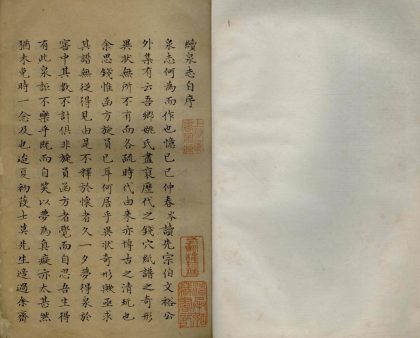 續泉志自序
泉志何為而作也憶己巳仲春岑讀先宗伯文裕公
外集有云吾鄉姚氏盡裒歷代之錢穴紙譜之奇形
異狀無所不有而各疏時代由来亦博古之清玩也
余思錢惟函方旋員已耳何居乎異狀奇形輙亟求
其譜無従得見由是不釋於懷者久一夕夢得泉於
窖中其數不計俱非旋員函方者覺而自忍吾生得
有此泉詎不樂乎既而自笑以夢為真癡亦太甚然
猶未免時一念及也迨夏初護士其先生過余齋